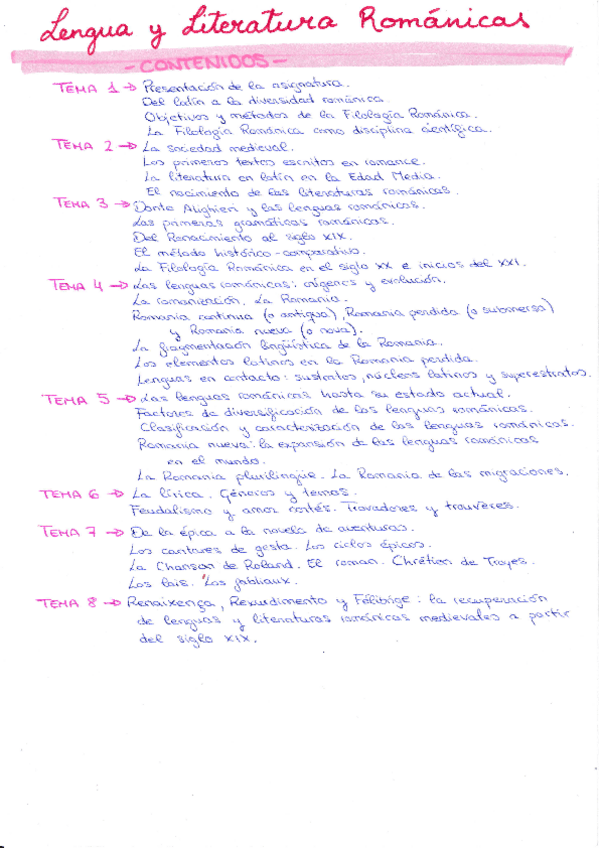 Lengua y Literatura Románicas
- CONTENIDOS -
TEMA 1 → Presentación de la asignatura.
Del latín a la diversidad románica.
Objetivos y métodos de la Filología Románica.
La Filología Románica como disciplina científica.
TEMA 2 → La sociedad medieval.
Los primeros textos escritos en romance.
La literatura en latín en la Edad Media.
El nacimiento de las literaturas románicas.
TEMA 3 → Dante Alighieri y las lenguas románicas.
Las primeras gramáticas románicas.
Del Renacimiento al siglo XIX.
El método histórico-comparativo.
La Filología Románica en el siglo XX e inicios del XXI.
TEMA 4 → Las lenguas románicas: orígenes y evolución.
La romanización. La Romania.
Romania continua (o antigua), Romania perdida (o submersa)
y Romania nueva (o nova).
La fragmentación lingüística de la Romania.
Los elementos latinos en la Romania perdida.
Lenguas en contacto: sustratos, núcleos latinos y superestratos.
TEMA 5 → Las lenguas románicas hasta su estado actual.
Factores de diversificación de las lenguas románicas.
Clasificación y caracterización de las lenguas románicas.
Romania nueva: la expansión de las lenguas románicas
en el mundo.
La Romania plurilingüe. La Romania de las migraciones.
TEMA 6 → La lírica. Géneros y temas.
Feudalismo y amor cortés. Trovadores y trouvères.
TEMA 7 → De la épica a la novela de aventuras.
Los cantares de gesta. Los ciclos épicos.
La Chanson de Roland. El roman. Chrétien de Troyes.
Los lais. Los fabliaux.
TEMA 8 → Renaixença, Rexurdimento y Félibrige: la recuperación
de lenguas y literaturas románicas medievales a partir
del siglo XIX.